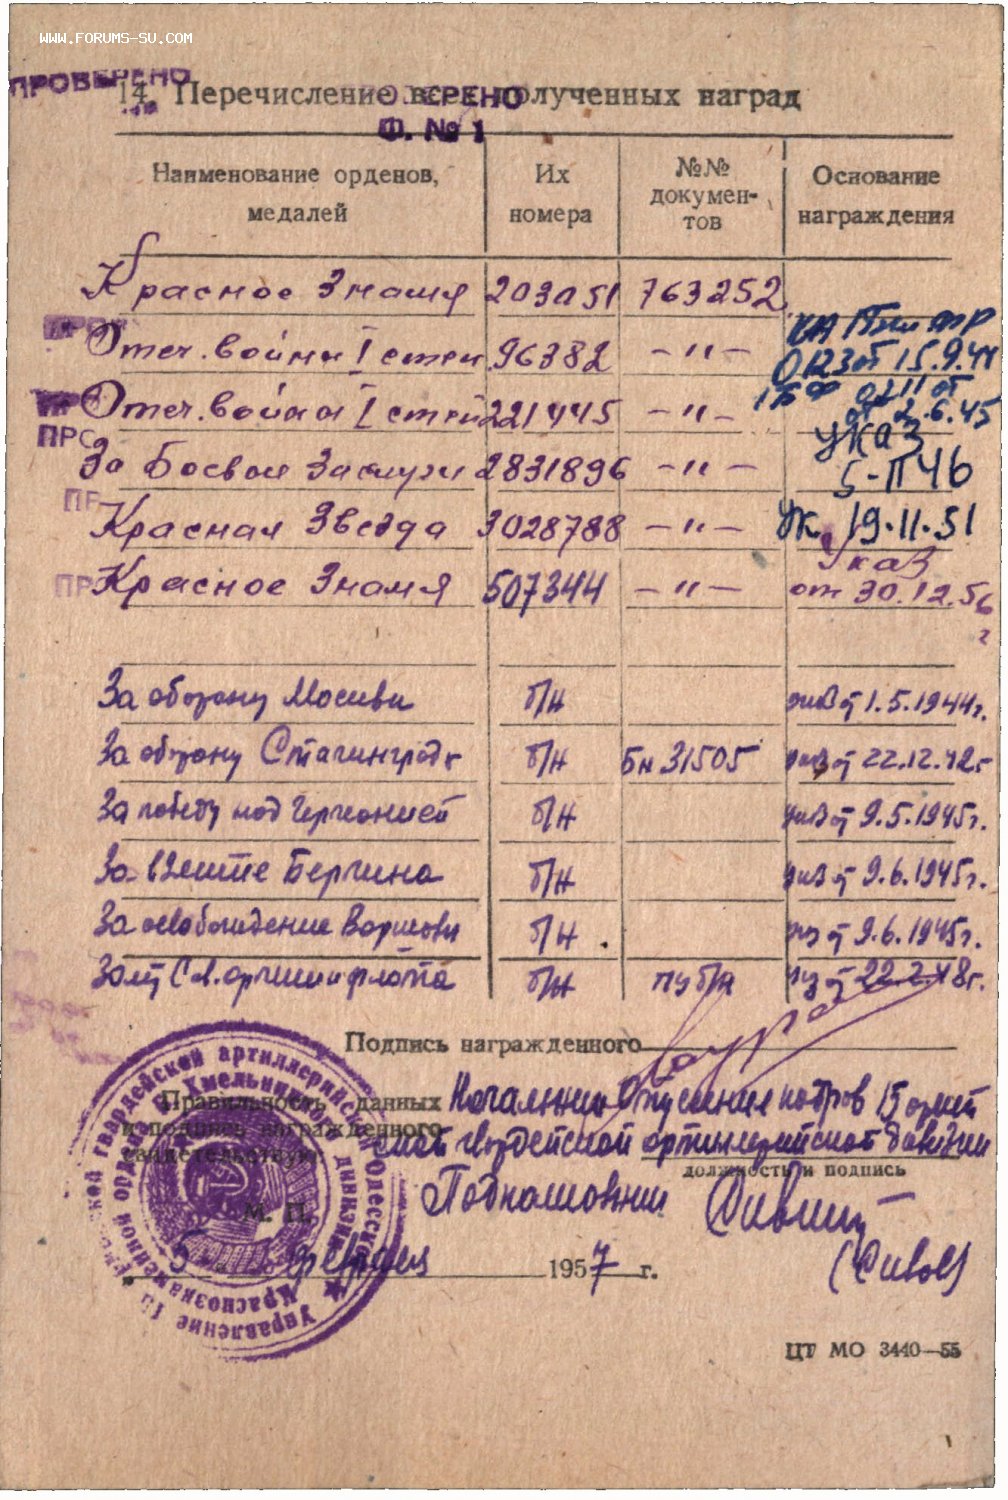 WWW.FORUMS-SU.COM
ПРОВЕРЕНО
14. Перечисление всех полученных наград
Ф. № 1
Наименование орденов, медалей
Их номера
№№ документов
Основание награждения
Красное Знамя 203051 763252
Отеч. войны I степ. 96382 — " — 0123 от 15.9.44
Отеч. война I степ 221445 — " — от 2.6.45
За боевые заслуги 2831896 — " — Указ
Красная Звезда 3028788 — " — Ук. 19.11.51
Красное Знамя 507344 — " — Указ от 30.12.56 г
За оборону Москвы б/н указ от 1.5.1944г.
За оборону Сталинграда б/н Бн 31505 указ от 22.12.42г
За победу над Германией б/н указ от 9.5.1945г.
За взятие Берлина б/н указ от 9.6.1945г.
За освобождение Варшавы б/н ук от 9.6.1945г.
30 лет Сов. армии и флота б/н ук от 22.2.48г.
Подпись награжденного
Правильность данных
и подпись награжденного
свидетельствую:
Начальник отделение кадров 15 отдельной гвардейской артиллерийской дивизии
должность и подпись
Подполковник
М. П.
5 февраля 1957 г.
ЦТ МО 3440—55